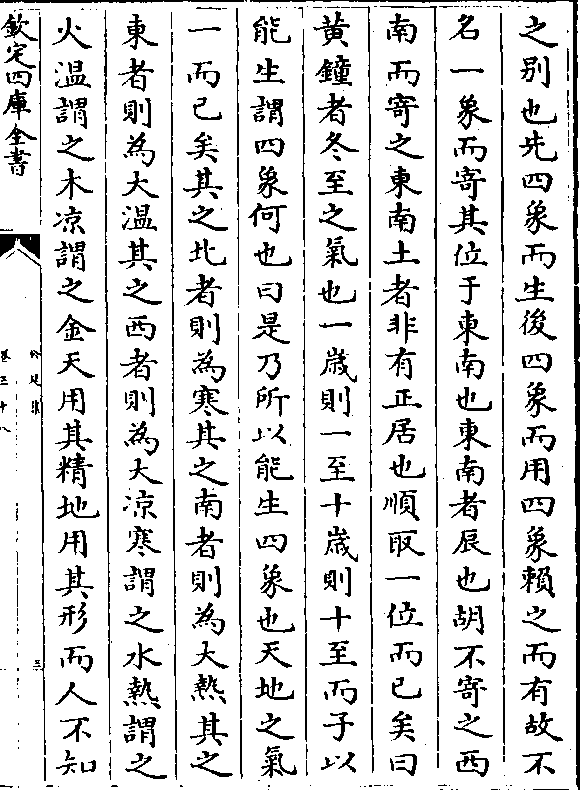 之别也先四象而生後四象而用四象賴之而有故不
名一象而寄其位于東南也東南者辰也胡不寄之西
南而寄之東南土者非有正居也順取一位而已矣曰
黄鐘者冬至之氣也一歲則一至十歲則十至而子以
能生謂四象何也曰是乃所以能生四象也天地之氣
一而已矣其之北者則為寒其之南者則為大熱其之
東者則為大温其之西者則為大凉寒謂之水熱謂之
火温謂之木凉謂之金天用其精地用其形而人不知
欽定四庫全書
卷三十八
三